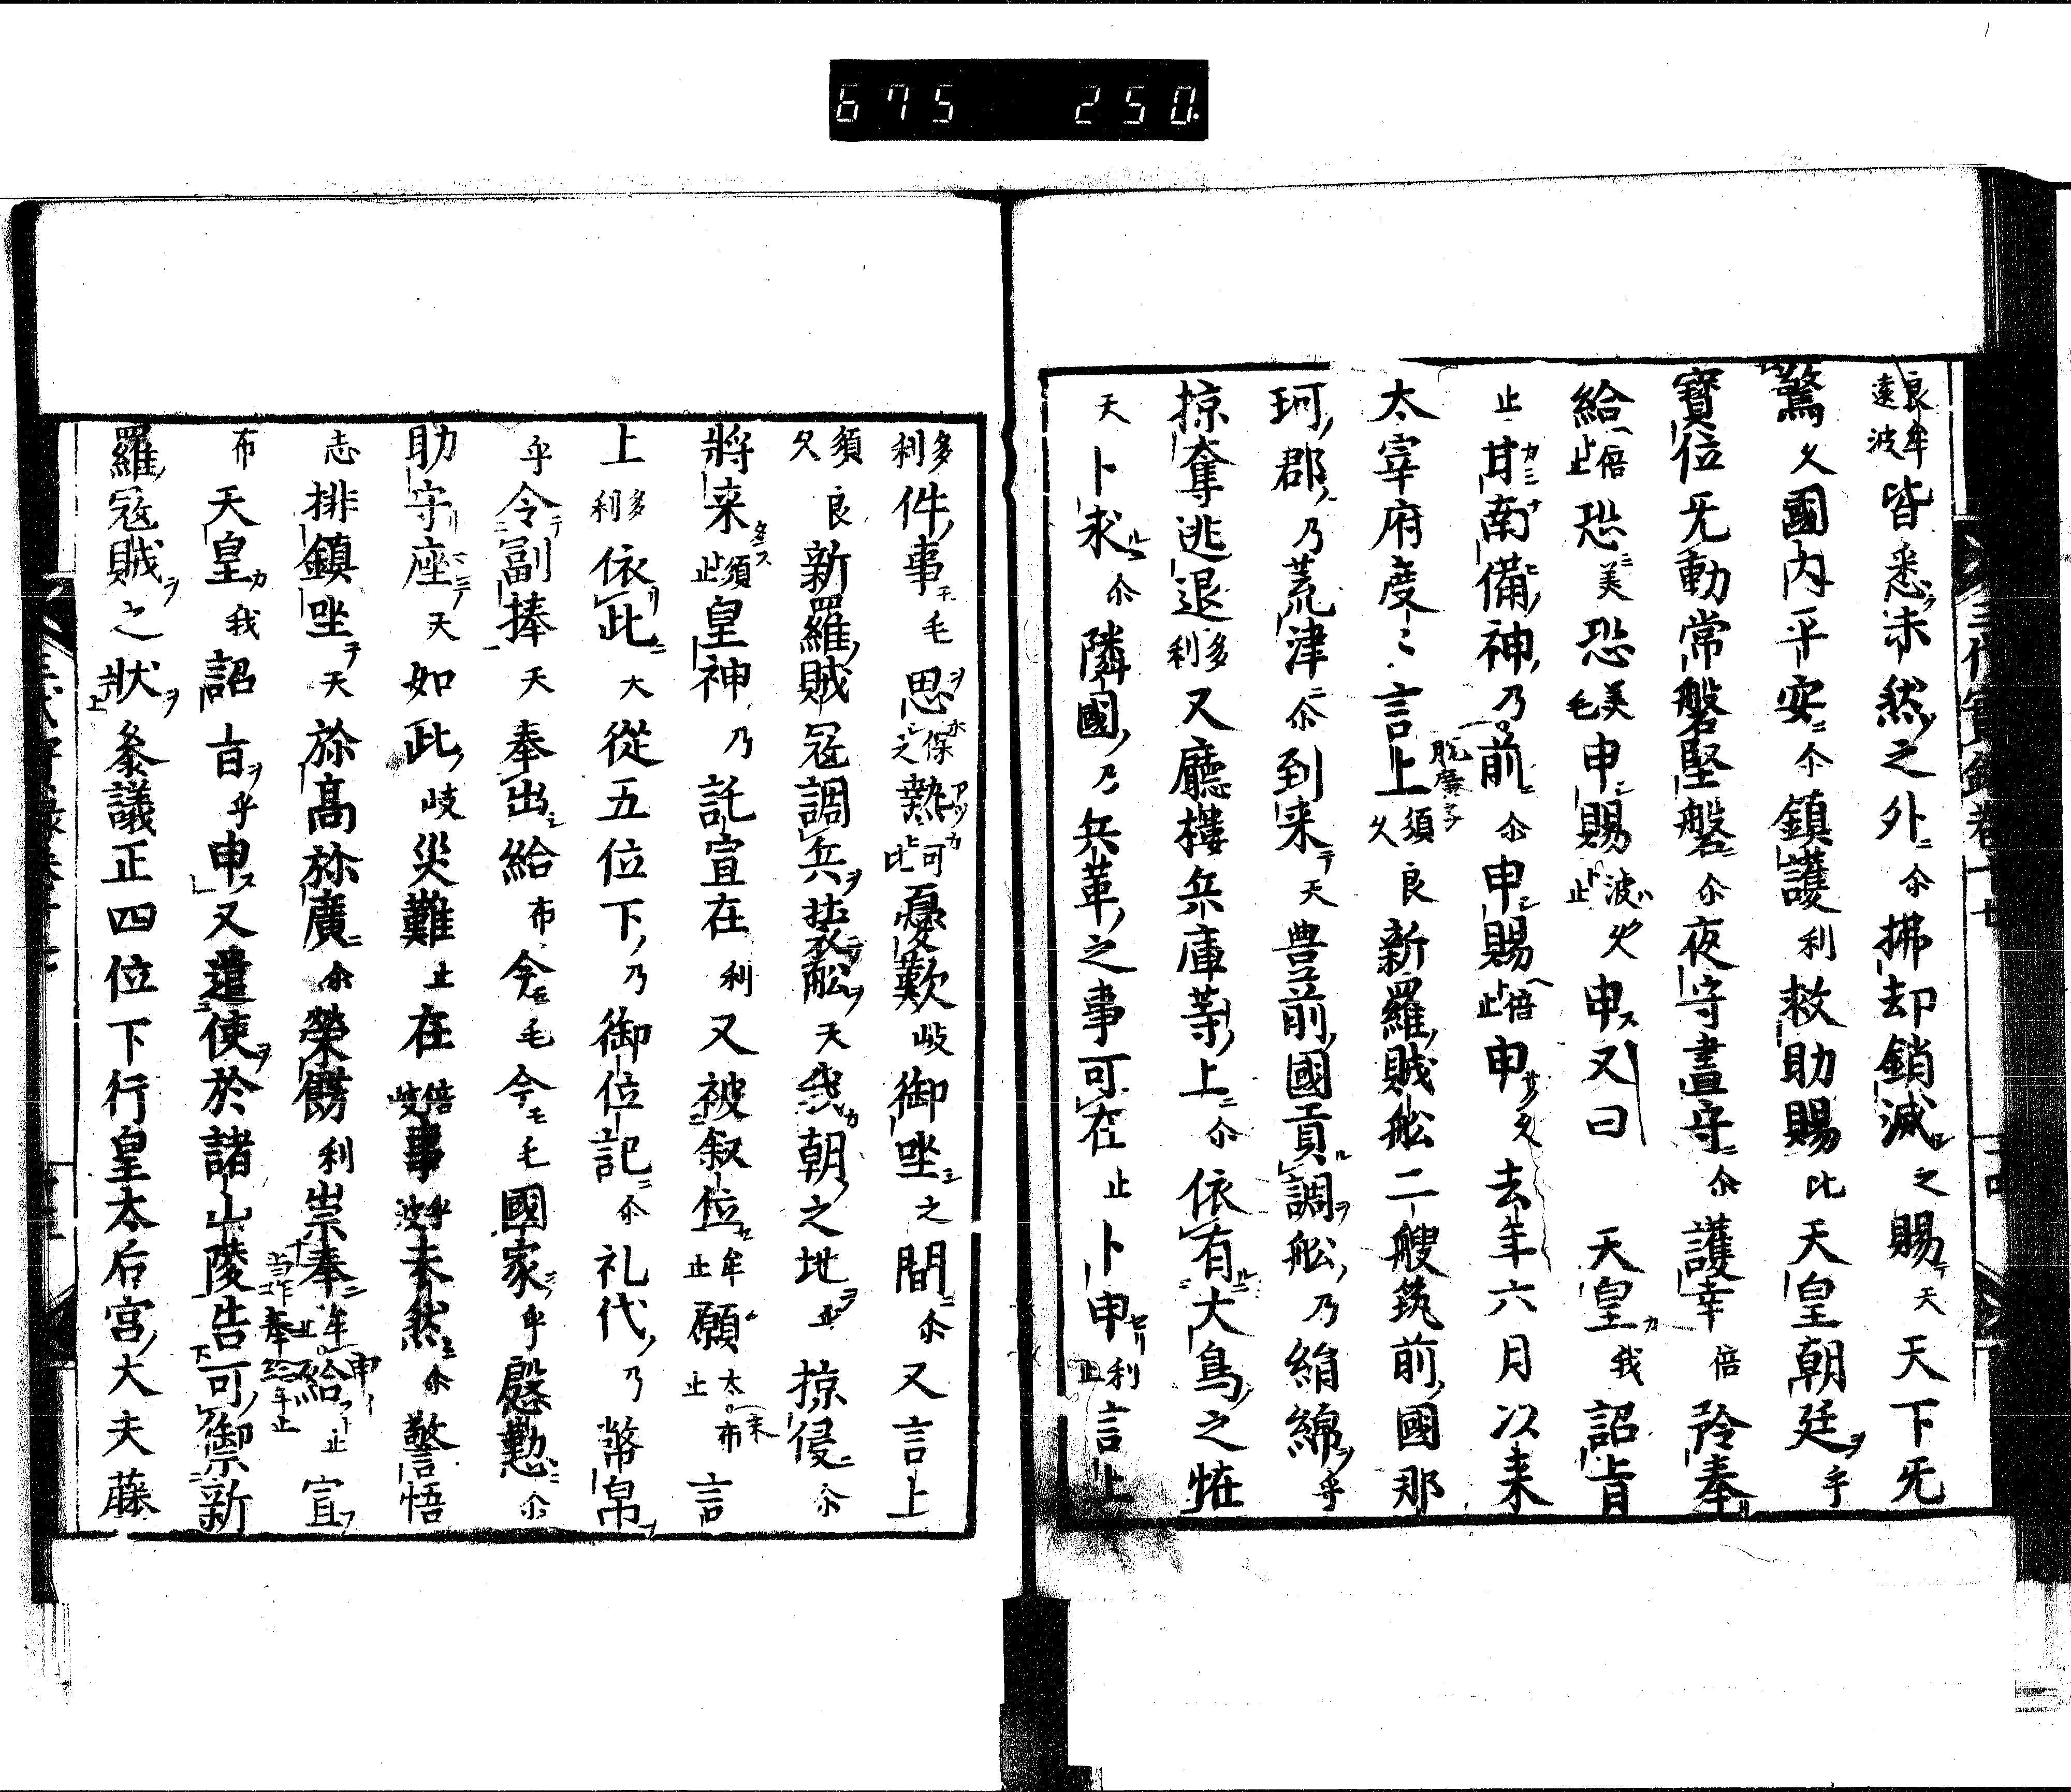 675 250
良牟遠波皆悉未然之外尒拂却銷滅之賜天天下旡
驚久國內平安尒鎮護利救助賜比天皇朝廷乎
寶位旡動常磐堅磐尒夜守晝守尒護幸倍矜奉
給倍止恐美恐美毛申賜波久止申又曰 天皇我詔旨
止甘南備神乃前尒申賜倍止申久去年六月以来
太宰府度〻言上須良久新羅賊舩二艘筑前國那
珂郡乃荒津尒到来天豊前國貢調舩乃絹綿乎
掠奪逃退多利又廳樓兵庫等上尒依有大鳥之恠
天卜求尒隣國乃兵革之事可在止卜申利止言上
多利件事毛思保之熱可比憂歎岐御坐之間尒又言上
須良久新羅賊冦調兵装舩天我朝之地乎掠侵尒
將来須止皇神乃託宣在利又被叙位牟止願太布止言
上多利依此大從五位下乃御位記尒礼代乃幣帛
乎令副捧天奉出給布今毛今毛國家乎慇懃尒
助守座天如此岐災難止在倍岐事乎波未然尒警悟
志排鎮坐天於高於廣尒榮餝利崇奉牟止給止宣
布天皇我詔旨乎申又遣使於諸山陵告可禦新
羅冦賊之狀參議正四位下行皇太后宮大夫藤